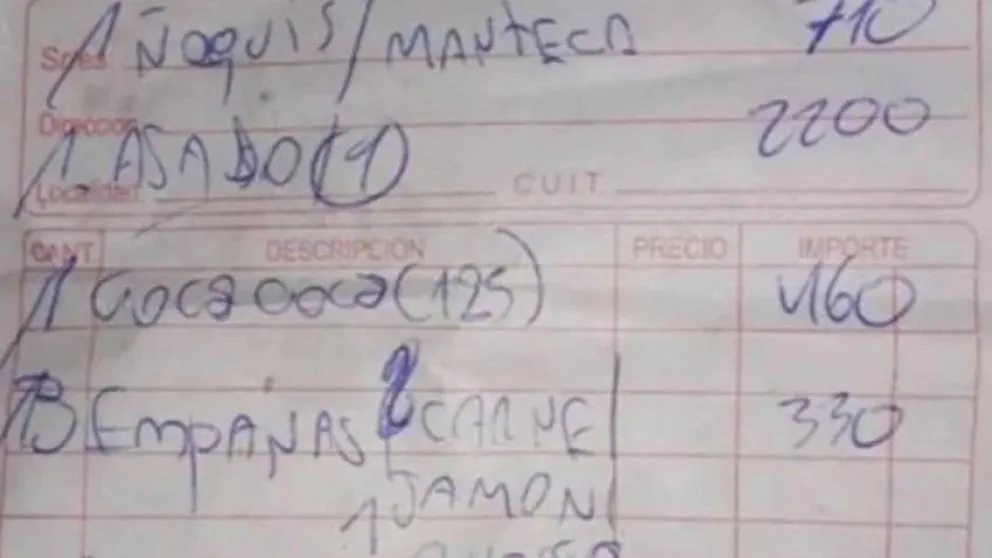 1 ÑOQUIS / MANTECA 710
Sres
Dirección
1 ASADO (1) 2200
Localidad C U I T
CANT DESCRIPCION PRECIO IMPORTE
1 COCA COCA (125) 460
3 EMPAÑAS 2 CARNE 330
1 JAMON